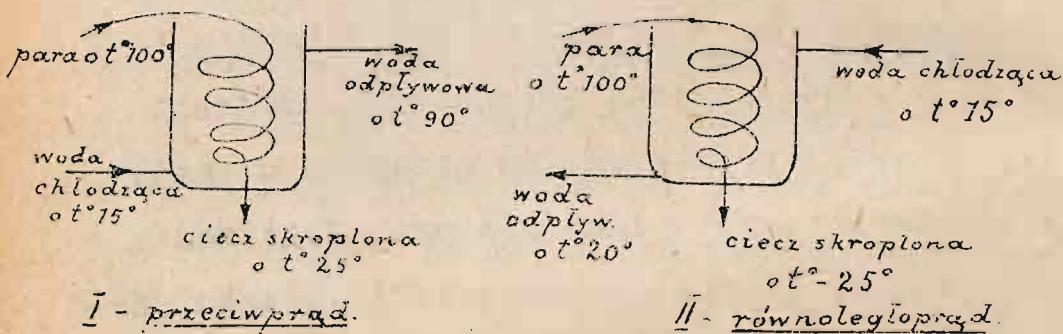 para o t° 100°
woda
odpływowa
o t° 90°
woda
chłodząca
o t° 15°
ciecz skroplona
o t° 25°
I - przeciwprąd.
para
o t° 100°
woda chłodząca
o t° 15°
woda
odpływ.
o t° 20°
ciecz skroplona
o t° - 25°
II - równoległoprąd.